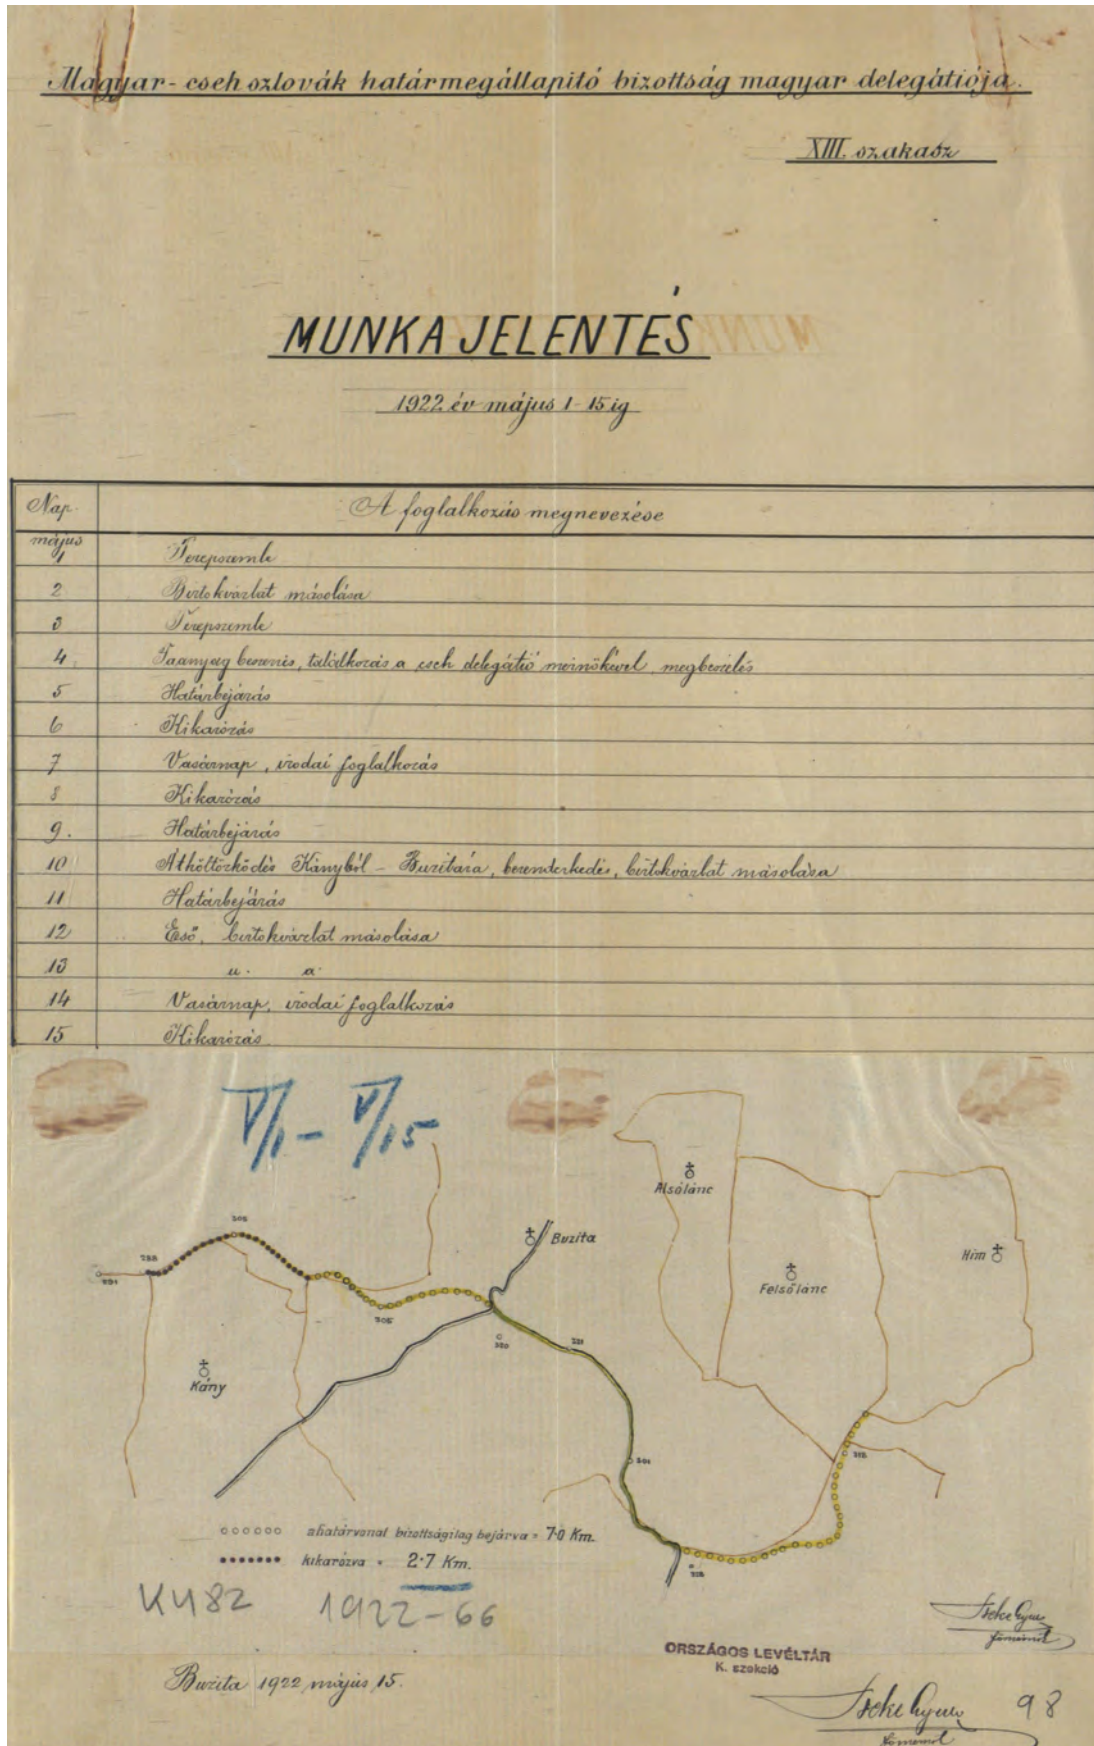 Magyar-cseh szlovák határmegállapitó bizottság magyar delegátiója.
XIII. szakasz
MUNKAJELENTÉS
1922 év május 1-15 ig
Nap. A foglalkozás megnevezése
május
1 Terepszemle
2 Birtokvázlat másolása
3 Terepszemle
4 Faanyag beszerzés, találkozás a cseh delegátió mérnökével, megbeszélés
5 Határbejárás
6 Kikarózás
7 Vasárnap, irodai foglalkozás
8 Kikarózás
9. Határbejárás
10 Áthöltözködés Kányból - Buzitára, berendezkedés, birtokvázlat másolása
11 Határbejárás
12 Eső, birtokvázlat másolása
13 u. a.
14 Vasárnap, irodai foglalkozás
15 Kikarózás
V/1 - V/15
Alsólánc
Buzita
Him
Felsőlánc
Kány
a határvonal bizottságilag bejárva = 7·0 Km.
kikarózva = 2·7 Km.
K482 1922-66
ORSZÁGOS LEVÉLTÁR
K. szekció
Buzita 1922 május 15.
98